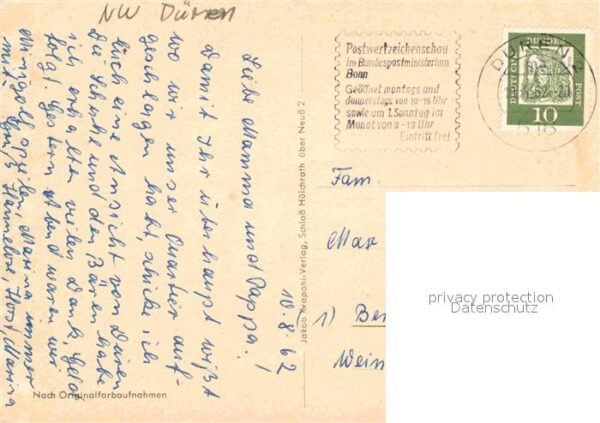 NW Düren
10.8.62
Liebe Mamma und Pappa!
Damit Ihr überhaupt wißt
wo wir unser Quartier auf-
geschlagen habt, schicke ich
Euch eine Ansicht von Düren
und den Bären habe
ich erhalten vielen Dank,
folgt. Gestern Abend waren wir
Minigolf Marina immer
mit. Gruß Hannelore, Horst, Marina
Nach Originalfarbaufnahmen
Jakob Krapohl-Verlag, Schloß Hülchrath über Neuß 2
Postwertzeichenschau
im Bundespostministerium
Bonn
Geöffnet montags und
donnerstags von 10-15 Uhr
sowie am 1. Sonntag im
Monat von 9-13 Uhr
Eintritt frei
DÜREN 2
DEUTSCHE BUNDESPOST
10
Fam.
Max
1) Ber
Wein
privacy protection
Datenschutz